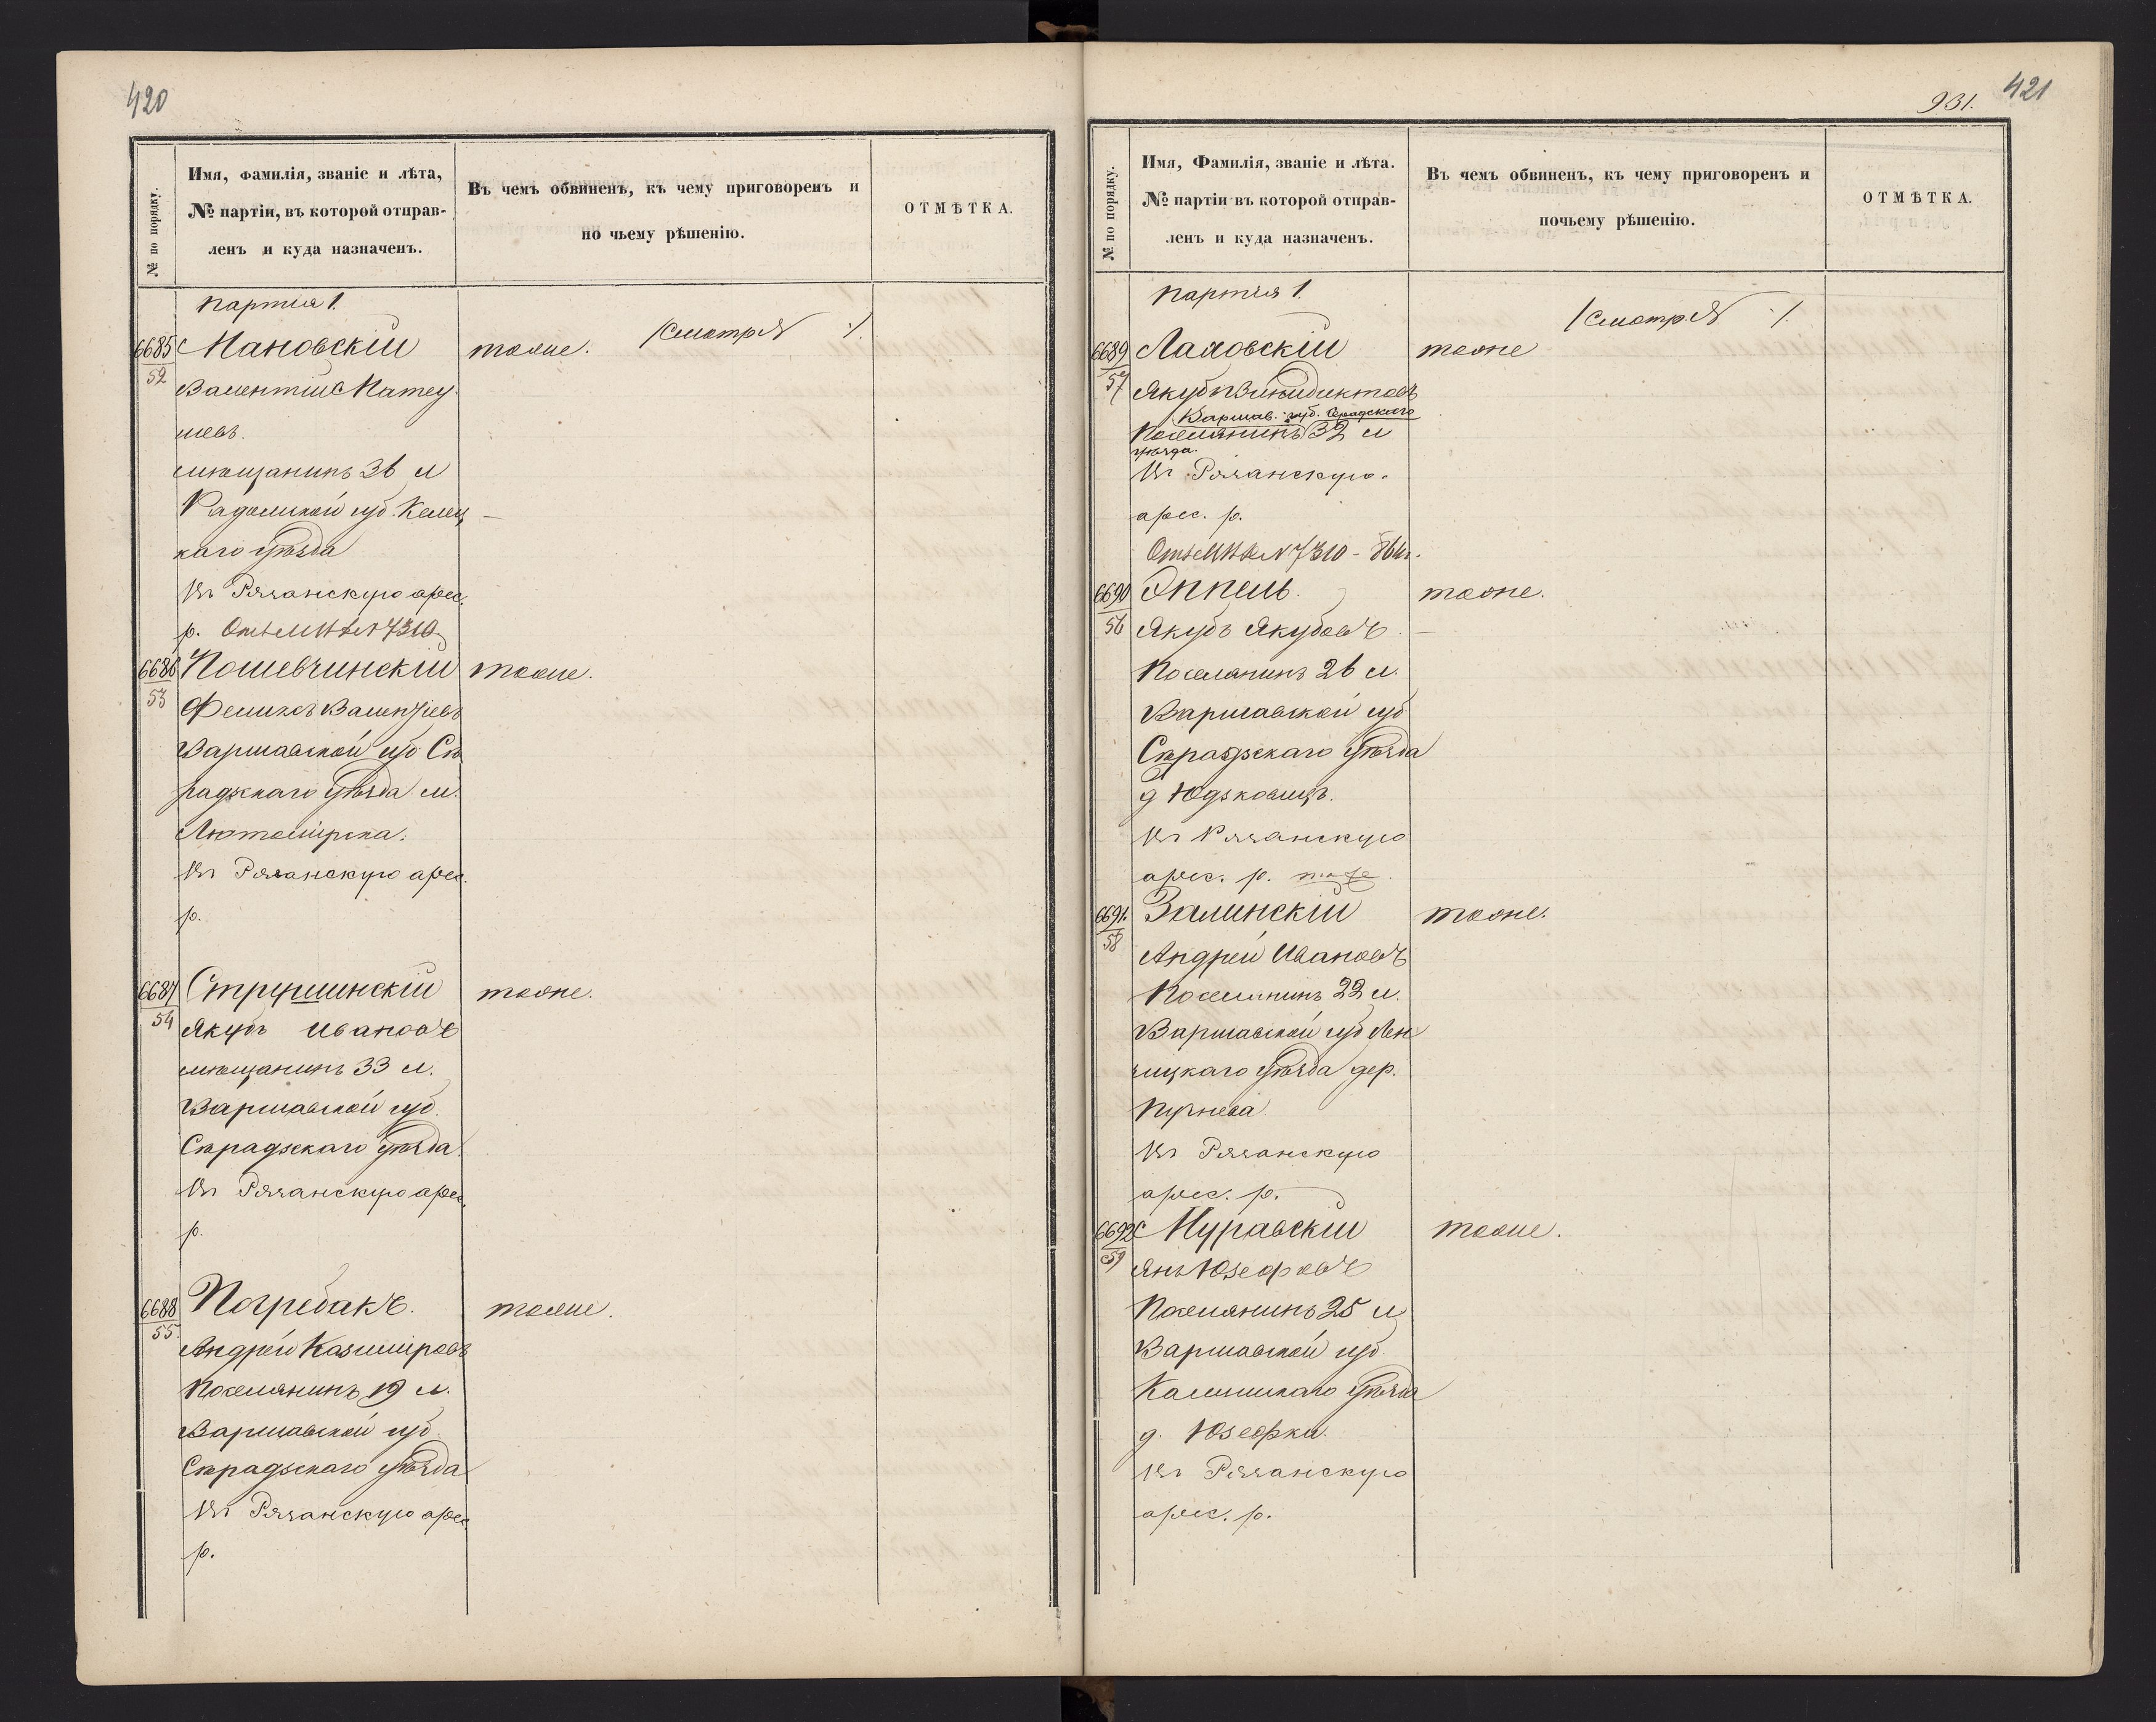 420
№ по порядку.
Имя, фамилія, званіе и лѣта,
№ партіи, въ которой отправ-
ленъ и куда назначенъ.
Въ чемъ обвиненъ, къ чему приговоренъ и
по чьему рѣшенію.
ОТМѢТКА.
партія 1.
/Смотр №
6685
52
Мановскій
тоже.
Валентій Матеу
шевъ.
мѣщанинъ 36 л
Радомской губ. Келец
каго уѣзда
въ Рязанскую арес.
р. № 7310
6686
53
Пошевчинскій
тоже.
Феликсъ Валентіевъ
Варшавской губ Сѣ
радзскаго уѣзда м.
Лютомірска.
въ Рязанскую арес.
р.
6687
54
Струшинскій
тоже.
Якубъ Ивановъ
мѣщанинъ 33 л.
Варшавской губ.
Сѣрадзскаго уѣзда
въ Рязанскую арес.
р.
6688
55
Погребакъ.
тоже.
Андрей Казиміровъ
Поселянинъ 19 л.
Варшавской губ.
Сѣрадзскаго уѣзда
въ Рязанскую арес
р.
421
931.
№ по порядку.
Имя, Фамилія, званіе и лѣта.
№ партіи въ которой отправ-
ленъ и куда назначенъ.
Въ чемъ обвиненъ, къ чему приговоренъ и
почьему рѣшенію.
ОТМѢТКА.
партія 1.
/Смотр. №
6689
57
Лаховскій
тоже
Якубъ Винидиктовъ
Варшав. губ. Серадскаго
Поселянинъ 32 л
уѣзда.
въ Рязанскую.
арес. р.
№ 7310
6690
56
Эппель.
тоже.
Якубъ Якубовъ
Поселянинъ 26 л.
Варшавской губ
Сѣрадзскаго уѣзда
д Юдзковицъ.
въ Рязанскую
арес. р.
6691.
58
Залинскій
тоже.
Андрей Ивановъ
Поселянинъ 22 л.
Варшавской губ Лен
чицкаго уѣзда дер.
Пучнева
въ Рязанскую
арес. р.
6692
59
Муравскій
тоже.
Янъ Юзефовъ
Поселянинъ 25 л
Варшавской губ.
Калишскаго уѣзда
д. Юзефки.
въ Рязанскую
арес. р.